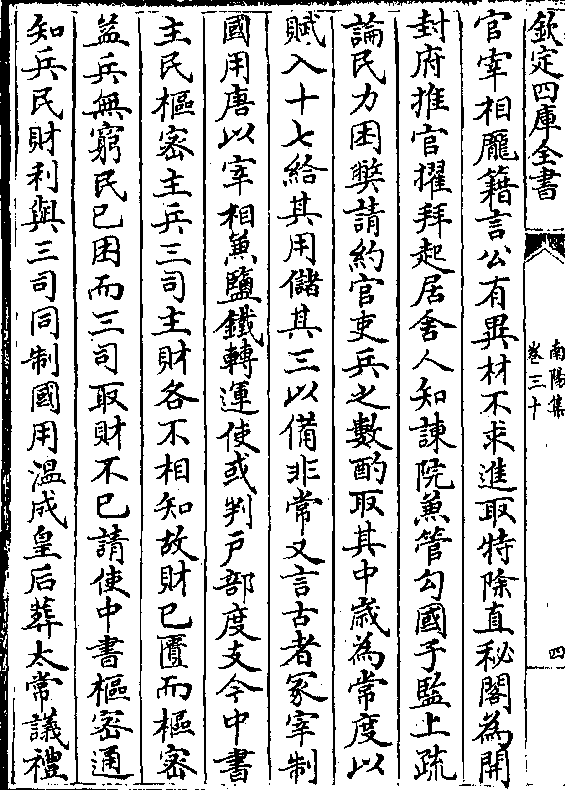 欽定四庫全書
南陽集
卷三十
四
官宰相龐籍言公有異材不求進取特除直秘閣為開
封府推官擢拜起居舍人知諫院兼管勾國子監上疏
論民力困弊請約官吏兵之數酌取其中歲為常度以
賦入十七給其用儲其三以備非常又言古者冢宰制
國用唐以宰相兼鹽鐵轉運使或判戶部度支今中書
主民樞密主兵三司主財各不相知故財已匱而樞密
益兵無窮民已困而三司取財不已請使中書樞密通
知兵民財利與三司同制國用溫成皇后葬太常議禮